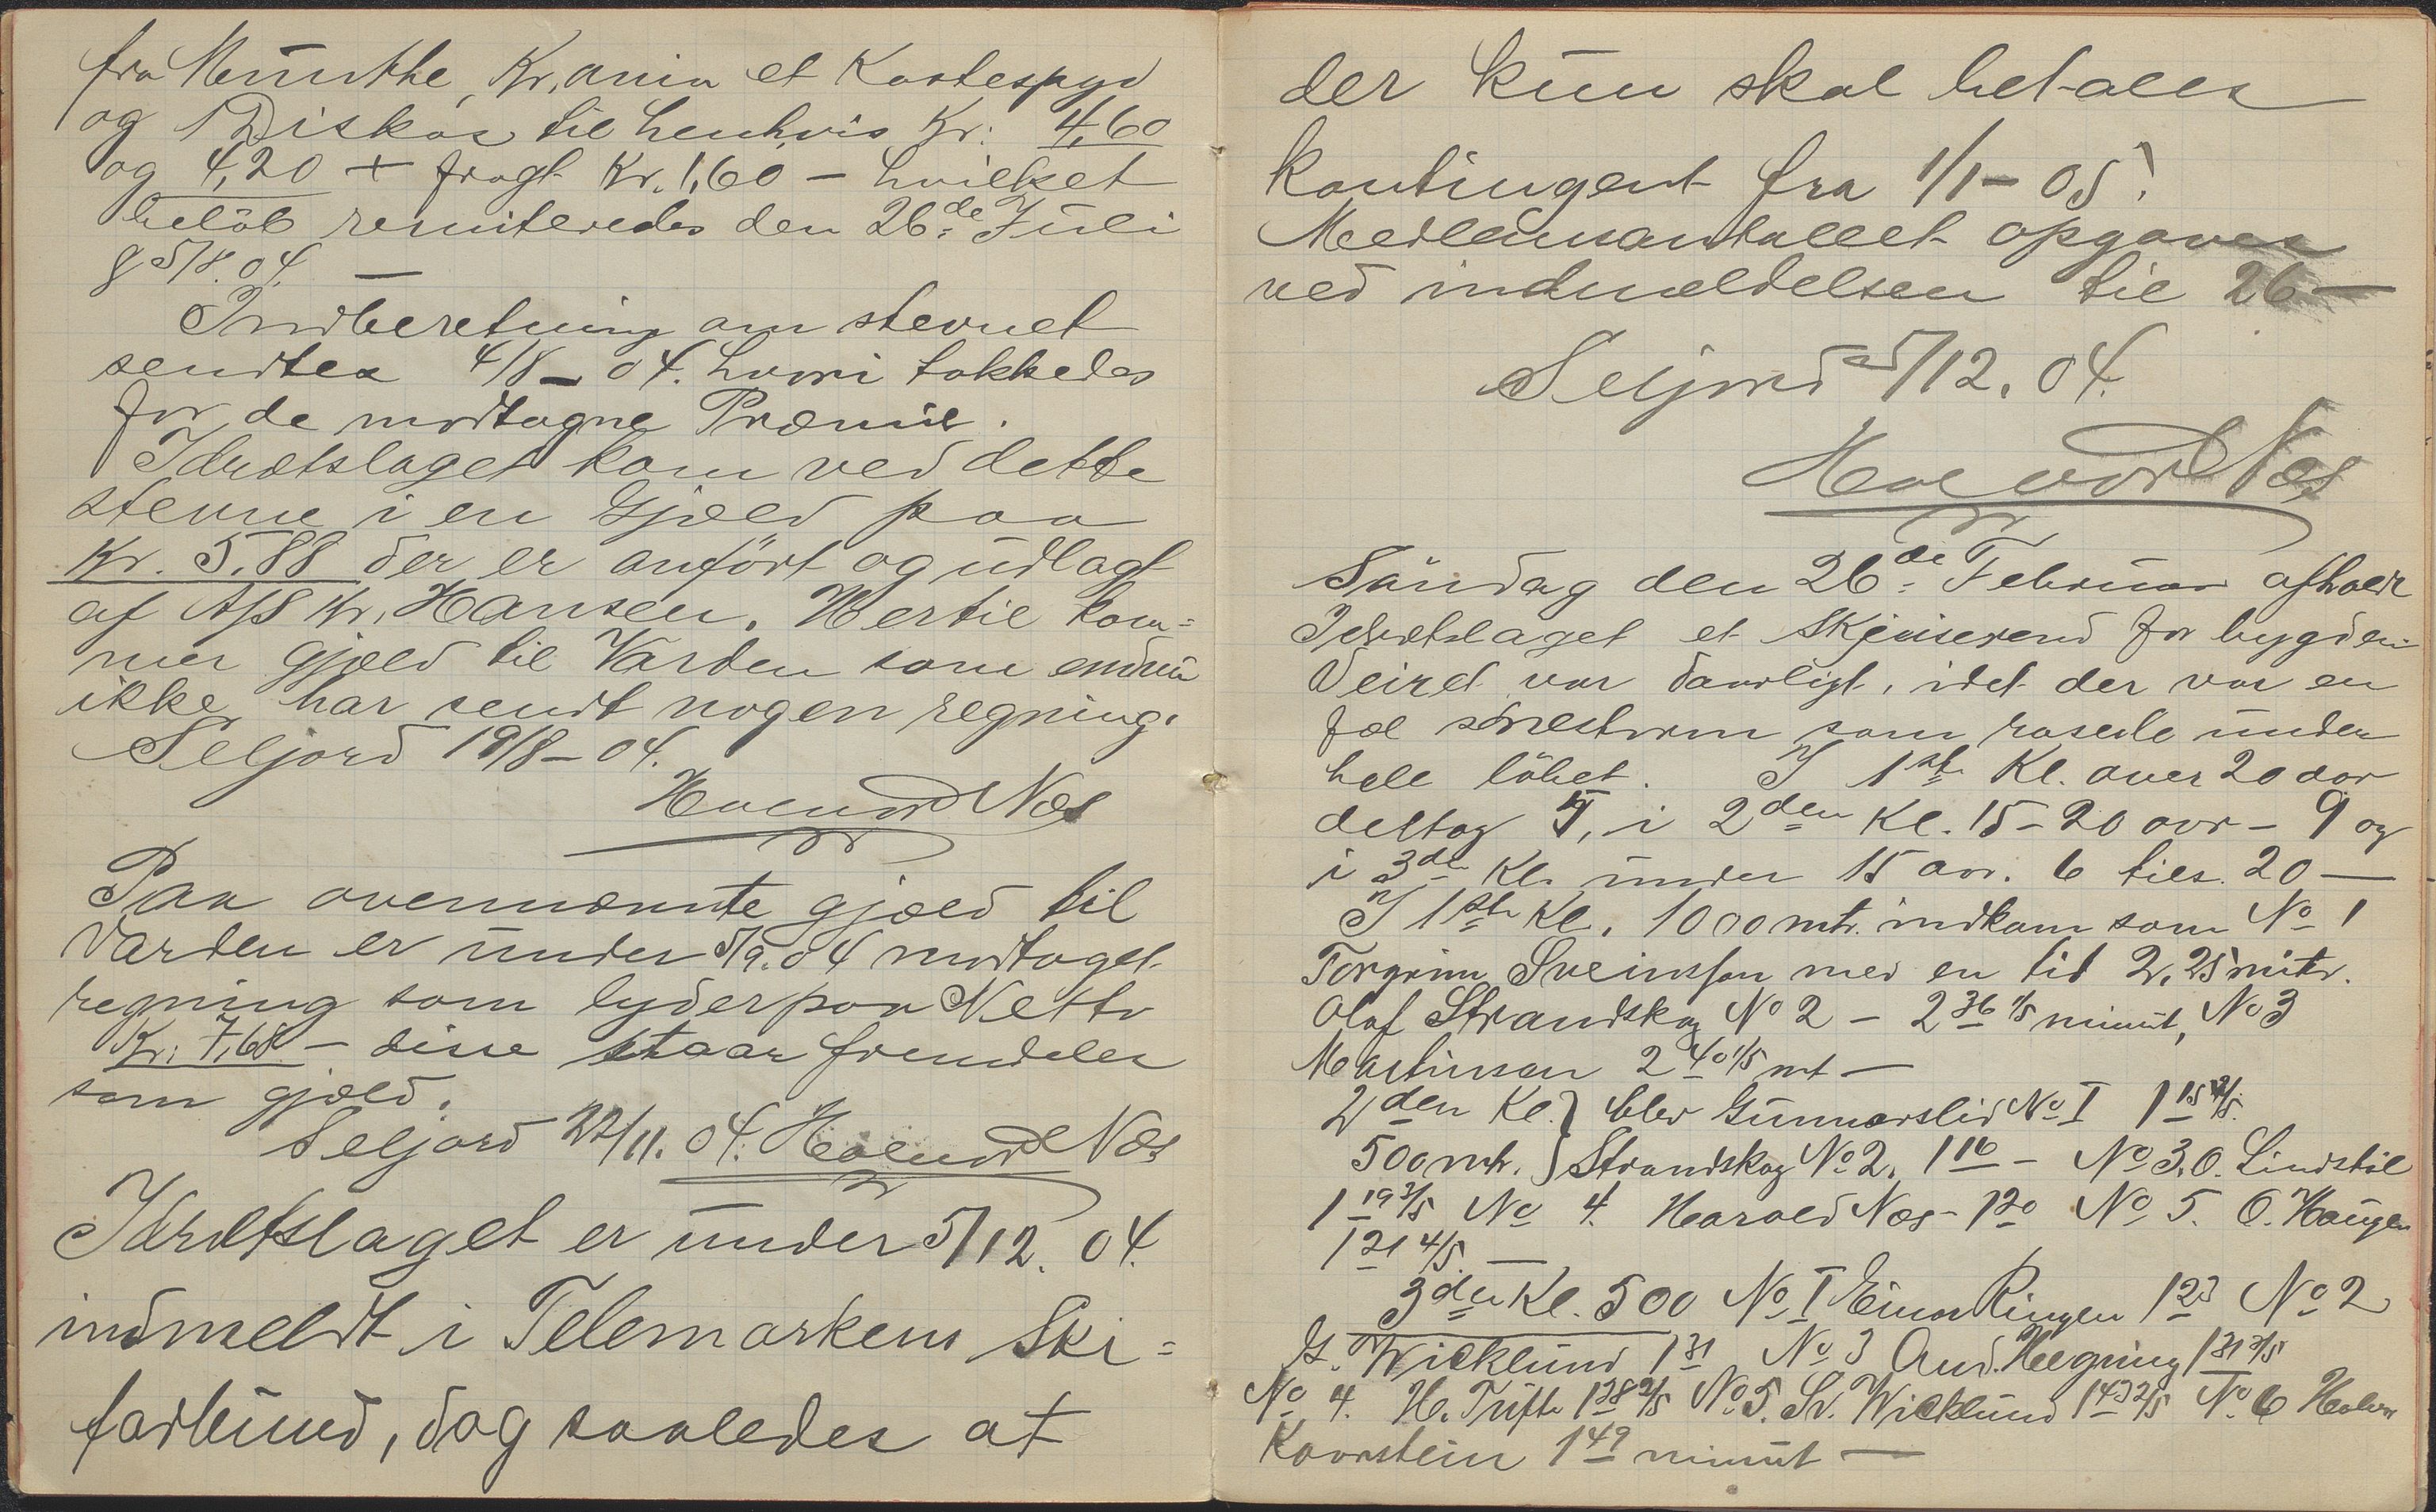 fra Münthe, Kr.ania et Kastespyd
og 1 Diskos til henhvis Kr: 4,60
og 4,20 + fragt Kr. 1,60 – hvilket
belöb remiteredes den 26de Juli
g 5/8. 04. —
Indberetning om stevnet
sendtes 4/8 – 04. hvori takkedes
for de modtagne Præmie.
Idrætslaget kom ved dette
stevne i en Gjæld paa
Kr. 5,88 der er anfört og üdlagt
af Kr. Hansen. Hertil kom=
mer gjæld til Varden som endnü
ikke har sendt nogen regning.
Seljord 19/8 – 04.
Halvor Næs
Paa ovennævnte gjæld til
Varden er ünder 5/9. 04 modtaget
regning som lyder paa Netto
Kr: 7,68 – disse staar fremdeles
som gjæld.
Seljord 22/11. 04. Halvor Næs
Idrætslaget er ünder 5/12. 04.
indmeldt i Telemarkens Ski=
forbünd, dog saaledes at
der kün skal betales
kontingent fra 1/1 – 05.
Medlemsantallet opgaves
ved indmeldelsen til 26 —
Seljord 5/12. 04.
Halvor Næs
Söndag den 26de Februar afholdt
Idrætslaget et Skjeiserend for bygden
Veiret var daarligt, idet der var en
fæl snestorm som rasede ünder
hele löbet. I 1ste Kl. over 20 aar
deltog 5, i 2den Kl. 15 – 20 aar – 9 og
i 3de Kl. ünder 15 aar. 6 tils. 20 —
I 1ste Kl. 1000 mtr. indkom som No 1
Torgrim Sveinsson med en tid 2,25 mitr.
Olaf Strandskog No 2 – 2 36 1/5 minüt, No 3
Martinsen 2 40 1/5 mt —
2den Kl. } blev Günnarslid No I 1 15 2/5.
500 mtr. } Strandskog No 2. 1 16 – No 3. O. Lindstöl
1 19 3/5 No 4. Harald Næs – 1 20 No 5. O. Haügen
1 21 4/5. —
3die Kl. 500 No I Einar Ringen 1 23 No 2
G. Wicklünd 1 31 No 3 And. Hegning 1 31 3/5
No 4. H. Tüfte 1 38 2/5 No 5. Sv. Wicklünd 1 43 2/5 No 6 Halvor
Kaorstein 1 49 minüt —